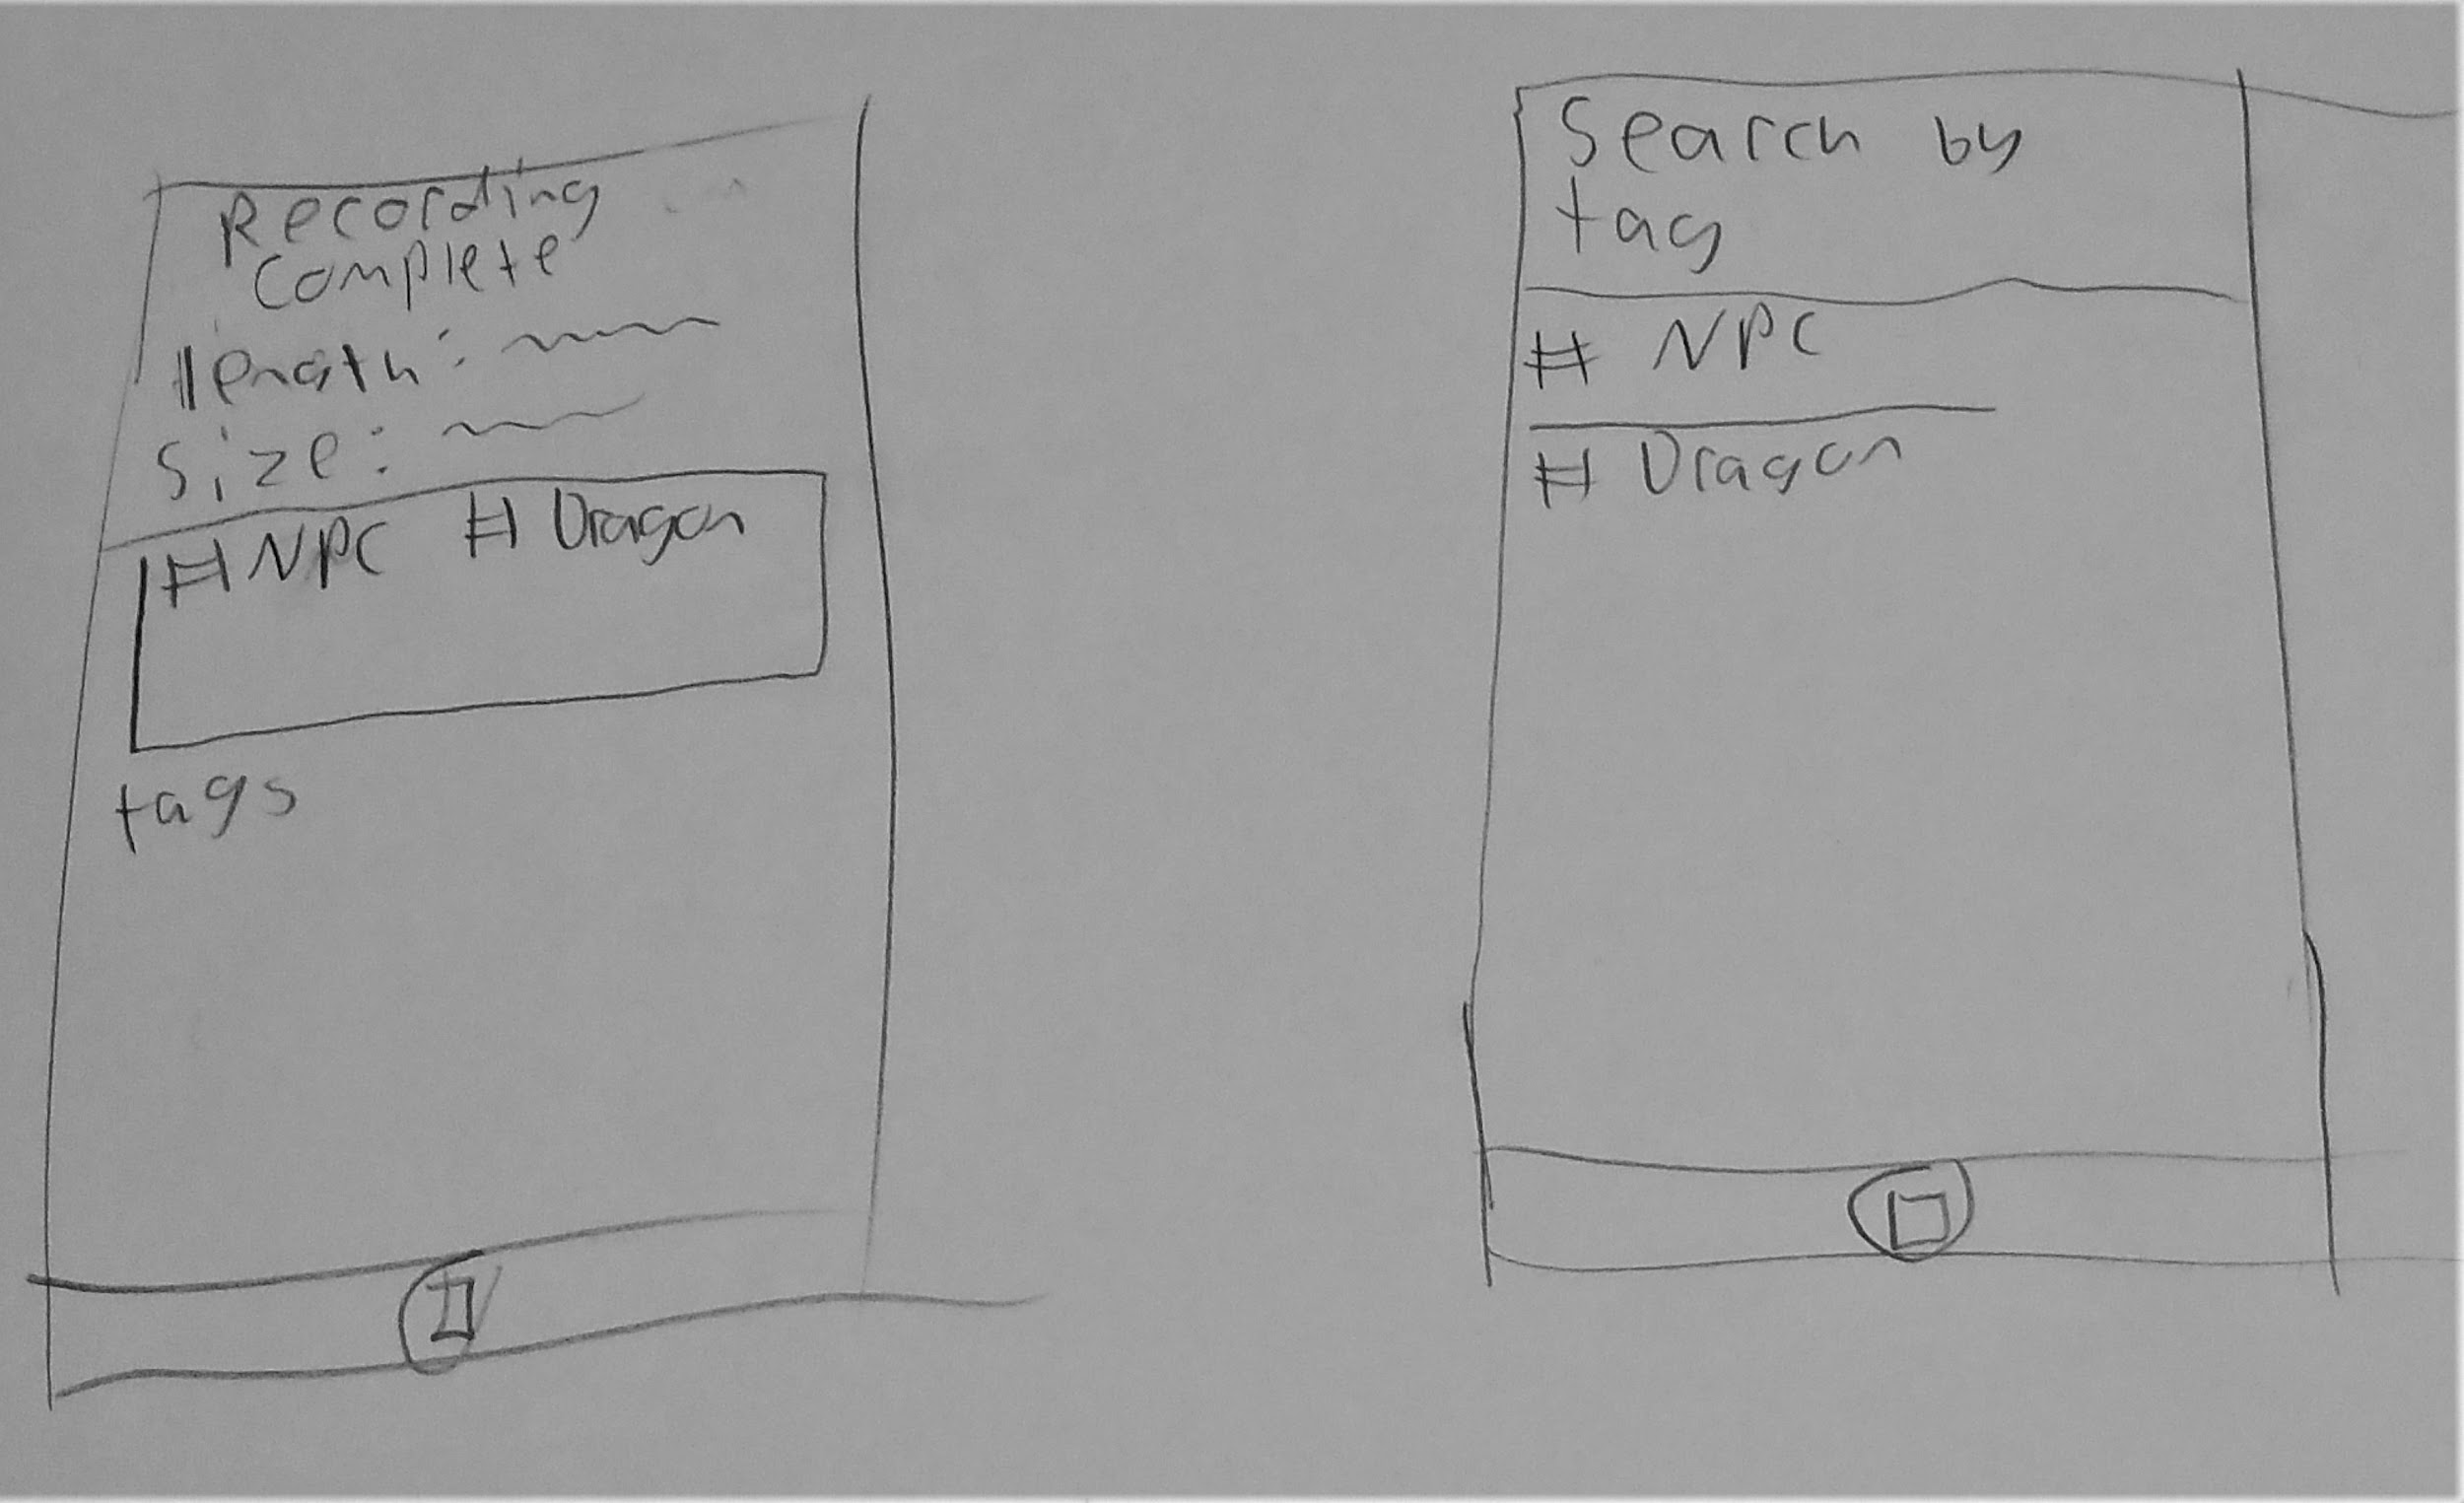 Recording
Complete
length:
Size:
#NPC # Dragon
tags
Search by
tag
# NPC
# Dragon